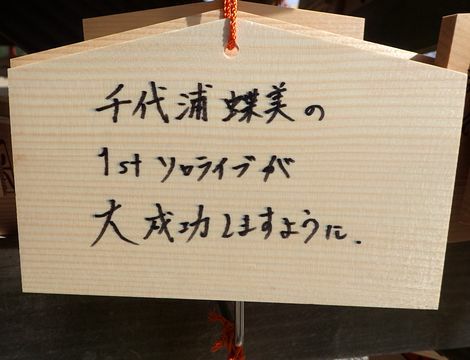 千代浦蝶美の
1stソロライブが
大成功しますように.